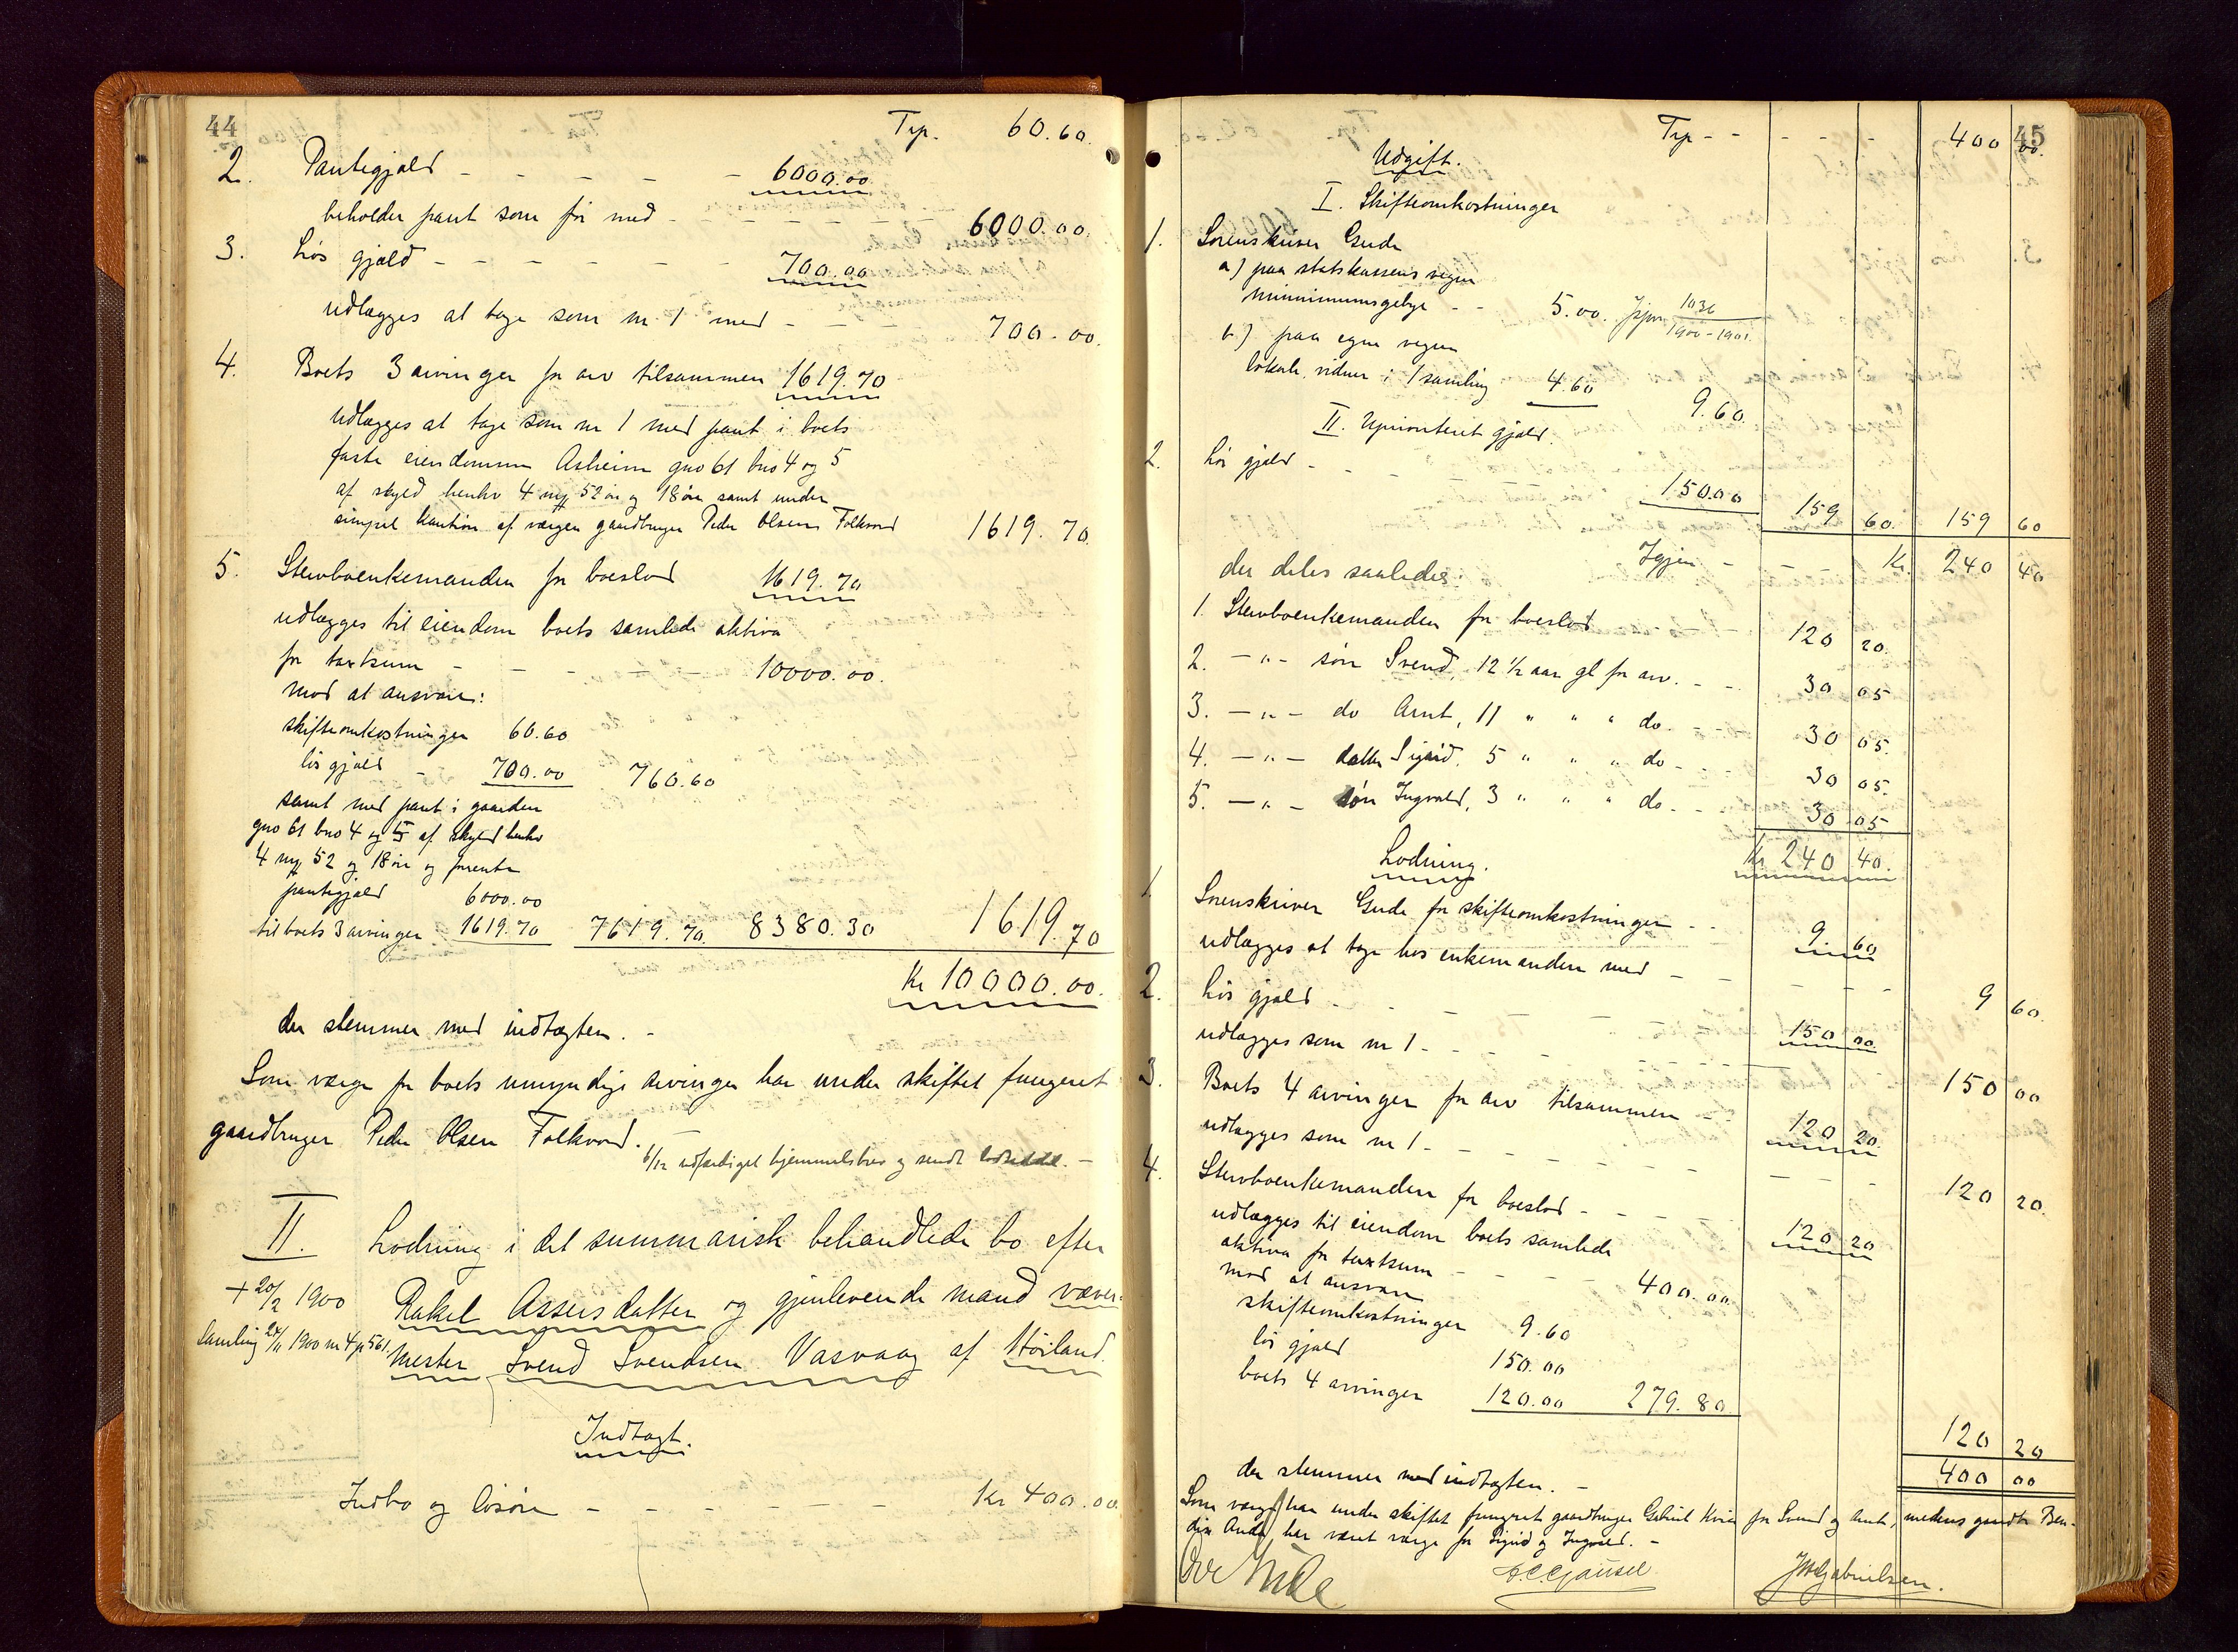 44
Trp. 60.60
2. Pantegjæld - - - - - 6000.00
beholder pant som før med - - - - - 6000.00.
3. Løs gjæld - - - - - 700.00
udlægges at tage som nr 1 med - - - 700.00.
4. Boets 3 arvinger for arv tilsammen 1619.70
udlægges at tage som nr 1 med pant i boets
faste eiendomme Asheim gno 61 bno 4 og 5
af skyld henhv 4 my 52 øre og 18 øre samt under
simpel kaution af værgen gaardbruger Peder Olsen Folkvord 1619.70.
5. Stervboenkemanden for boeslod 1619.70
udlægges til eiendom boets samlede aktiva
for taxtsum - - - - 10000.00.
mod at ansvare:
skifteomkostninger 60.60
løs gjæld - 700.00 760.60
samt med pant i gaarden
gno 61 bno 4 og 5 af skyld henhv
4 my 52 og 18 øre og forrente
pantegjæld 6000.00
til boets 3 arvinger 1619.70 7619.70. 8380.30 1619.70
Kr 10000.00.
der stemmer med indtægten. -
Som værge for boets umyndige arvinger har under skiftet fungeret
gaardbruger Peder Olsen Folkvord.
6/12 udfærdiget hjemmelsbrev og sendt
II. Lodning i det summarisk behandlede bo efter
+ 20/2 1900 Rakel Assersdatter og gjenlevende mand væver-
Samling 24/11 1900 nr 4 p 561. mester Svend Svendsen Vasvaag af Høiland.
Indtægt.
Indbo og løsøre - - - - - - Kr 400.00
45
Trp - - - - - 400 00.
Udgift.
I. Skifteomkostninger
1. Sorenskriver Gude
a) paa statskassens vegne
minimumsgebyr - - 5.00. Jpr 1036/1900-1901.
b) paa egne vegne
lokale, vidner i 1 samling 4.60 9.60
II. Uprioriteret gjæld.
2. Løs gjæld - - - 150.00 159 60. 159 60
Igjen - - - Kr. 240 40
der deles saaledes:
1. Stervboenkemanden for boeslod 120 20.
2. -"- søn Svend, 12 1/2 aar gl for arv. - - 30 05
3. -"- do Arnt, 11 " " " do. - - 30 05.
4. -"- datter Sigrid, 5 " " " do - - 30 05.
5. -"- søn Ingvald, 3 " " " do. - - 30 05
Kr 240 40.
Lodning.
1. Sorenskriver Gude for skifteomkostninger - - 9. 60
udlægges at tage hos enkemanden med - - - - 9 60.
2. Løs gjæld - - - - 150 00.
udlægges som nr 1 - - - - 150 00
3. Boets 4 arvinger for arv tilsammen - - 120 20.
udlægges som nr 1 - - - - - - 120 20.
4. Stervboenkemanden for boeslod - - - 120 20
udlægges til eiendom boets samlede
aktiva for taxtsum - - - - 400.00
mod at ansvare
skifteomkostninger 9.60
løs gjæld 150.00
boets 4 arvinger 120.00 279.80
120 20
der stemmer med indtægten. - 400 00
Som værge har under skiftet fungeret gaardbruger Gabriel Kvia for Svend og Arnt, medens gaardbr Ben-
dix Anda har været værge for Sigrid og Ingvald. -
Ove Gude
A.C. Gausel
J M Gabrielsen.